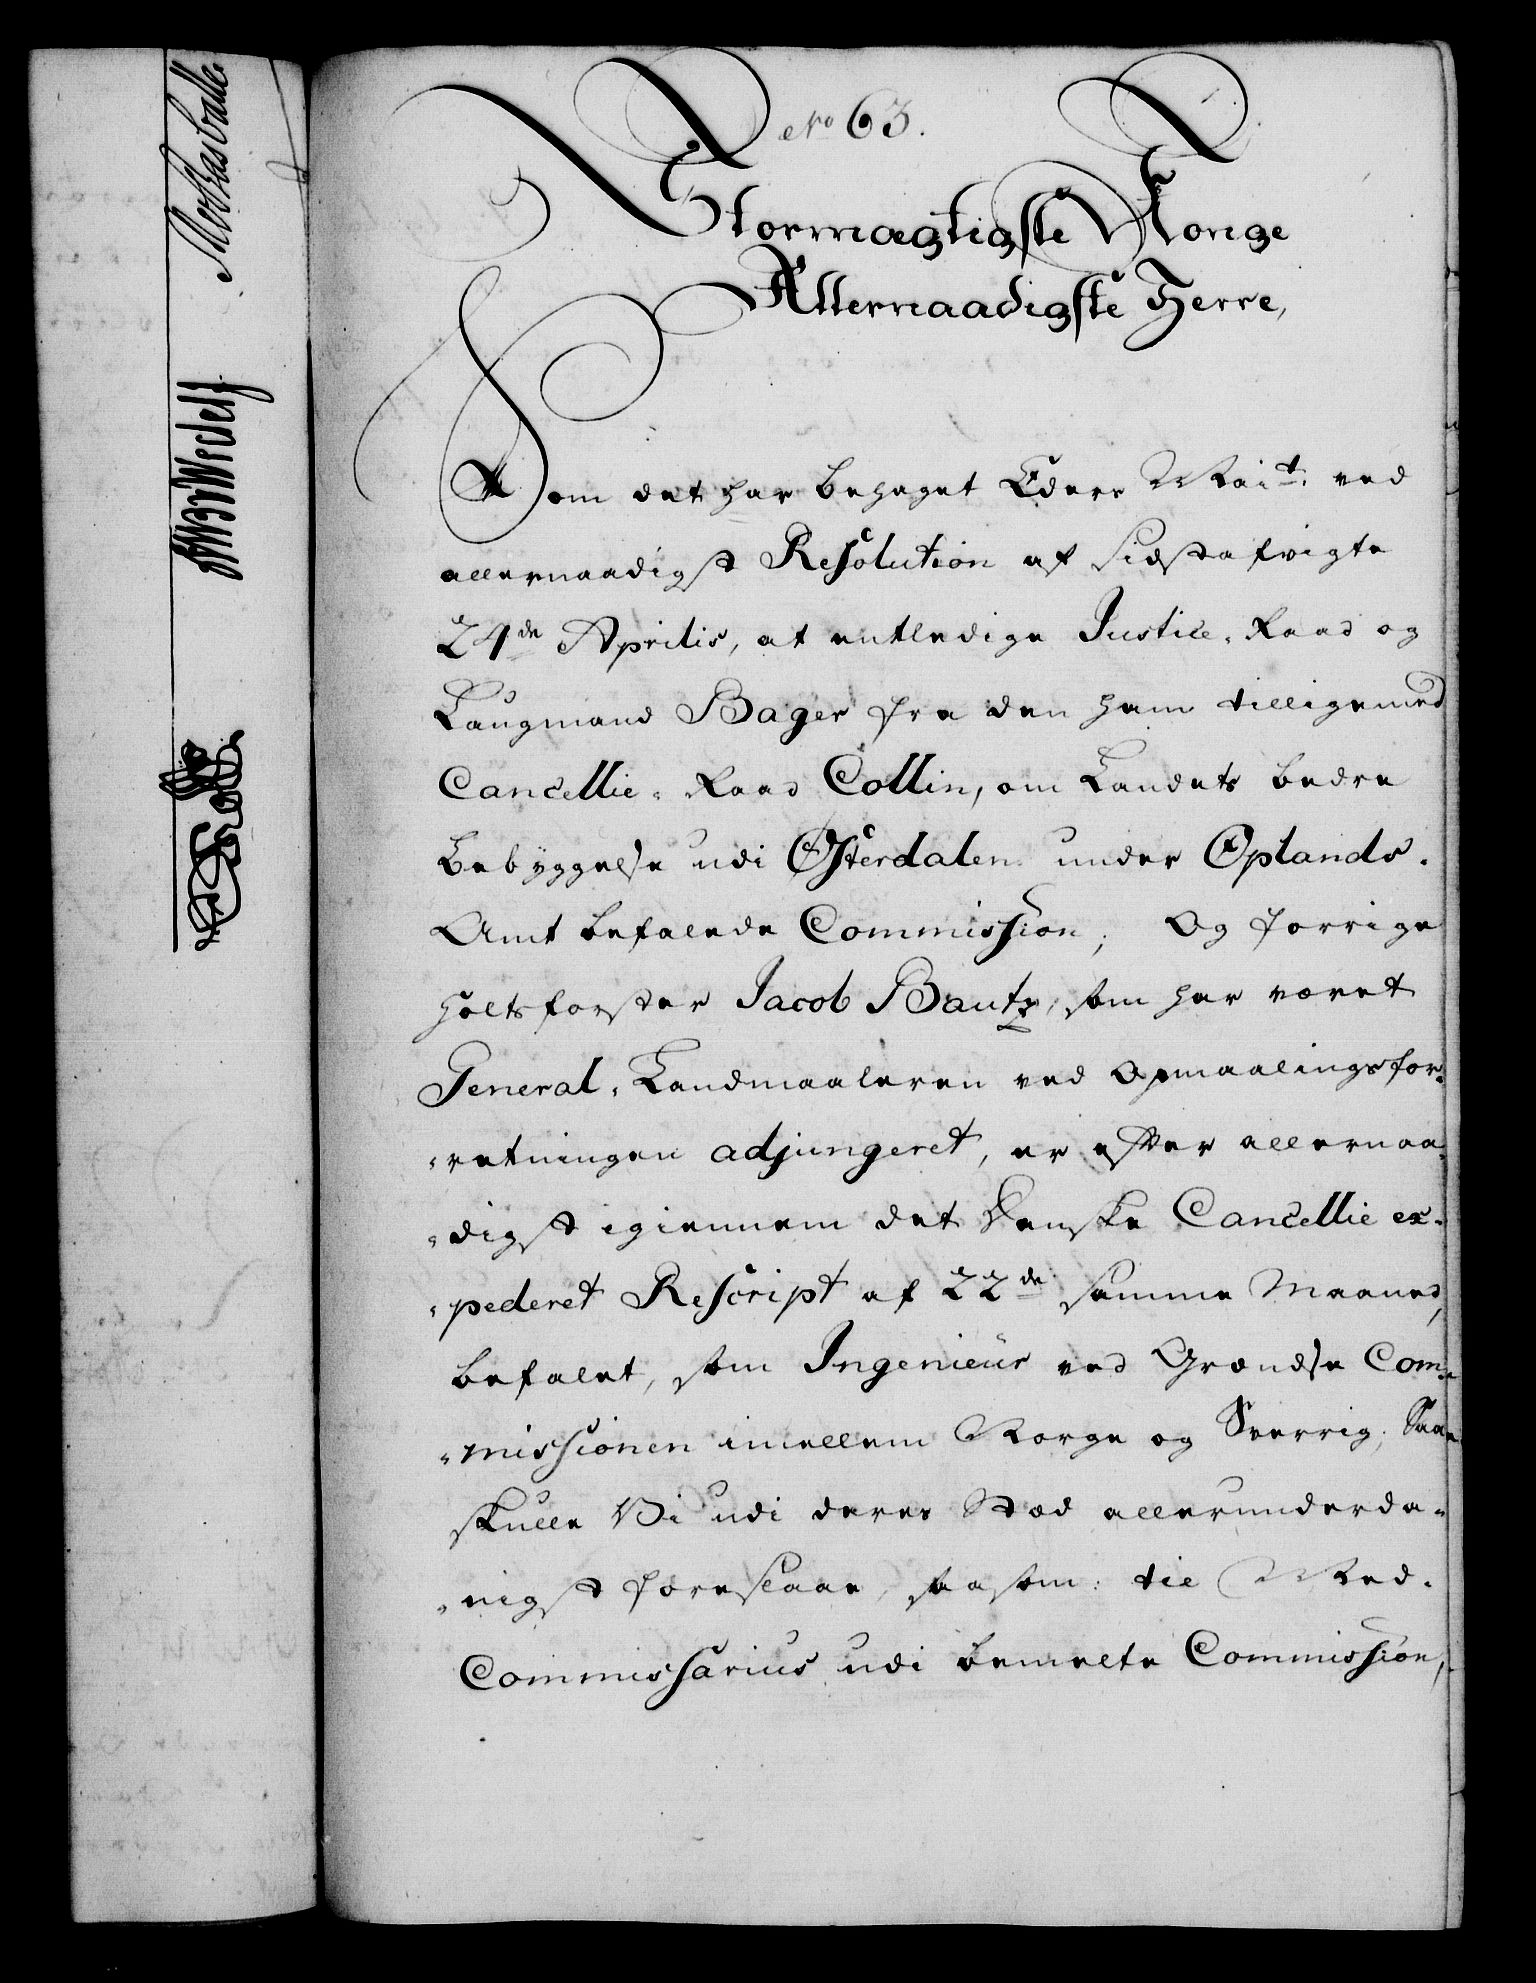 No 63.
Stormægtigste Konge
Allernaadigste Herre,
Som det har behaget Eders Mait. ved
allernaadigst Resolution af sidstafvigte
24de Aprilis, at entledige Justice-Raad og
Laugmand Bager fra den ham tilligemed
Cancellie-Raad Collin, om Landets bedre
bebyggelse udi Østerdalen under Oplands-
Amt befalede Commission; Og forrige
Holtsforster Jacob Bautz, som har været
General-Landmaaleren ved Opmaalingsfor-
-retningen adjungeret, er efter allernaa-
-digst igiennem det Danske Cancellie ex-
-pederet Rescript af 22de samme Maaned,
befalet, som Ingenieur ved Grændse Com-
-missionen imellem Norge og Sverrig; Saa
skulle Vi udi deres Stæd allerunderda-
-nigst foreslaae, saasom: til Med-
Commissarius udi bemelte Commission,